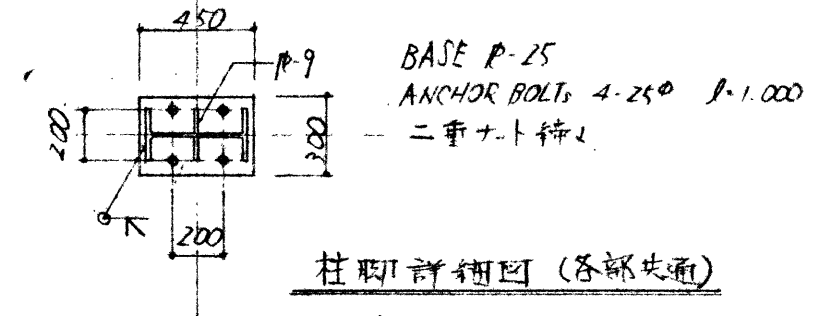 450
PL-9
BASE PL-25
ANCHOR BOLTs 4-25φ l=1.000
二重ナット締メ
200
300
200
柱脚詳細図 (各部共通)